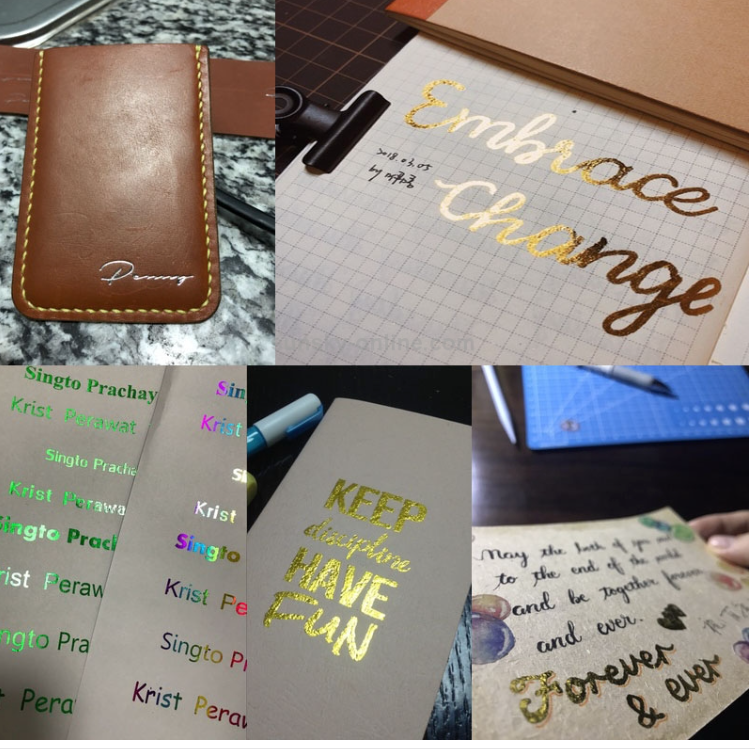 Embrace
2018.03.05
by
Change
sunsky-online.com
Singto Prachay
Krist Perawat
Singto Pracha
Krist Perawa
Singto Pracl
rist Peraw
ngto Pra
t Pera
Sin
Krist
Si
Krist
Singto
Krist Pe
Singto P
Krist Peraw
KEEP
discipline
HAVE
FUN
May the both of you
to the end of the world
and be together forever
and ever.
Forever
& ever